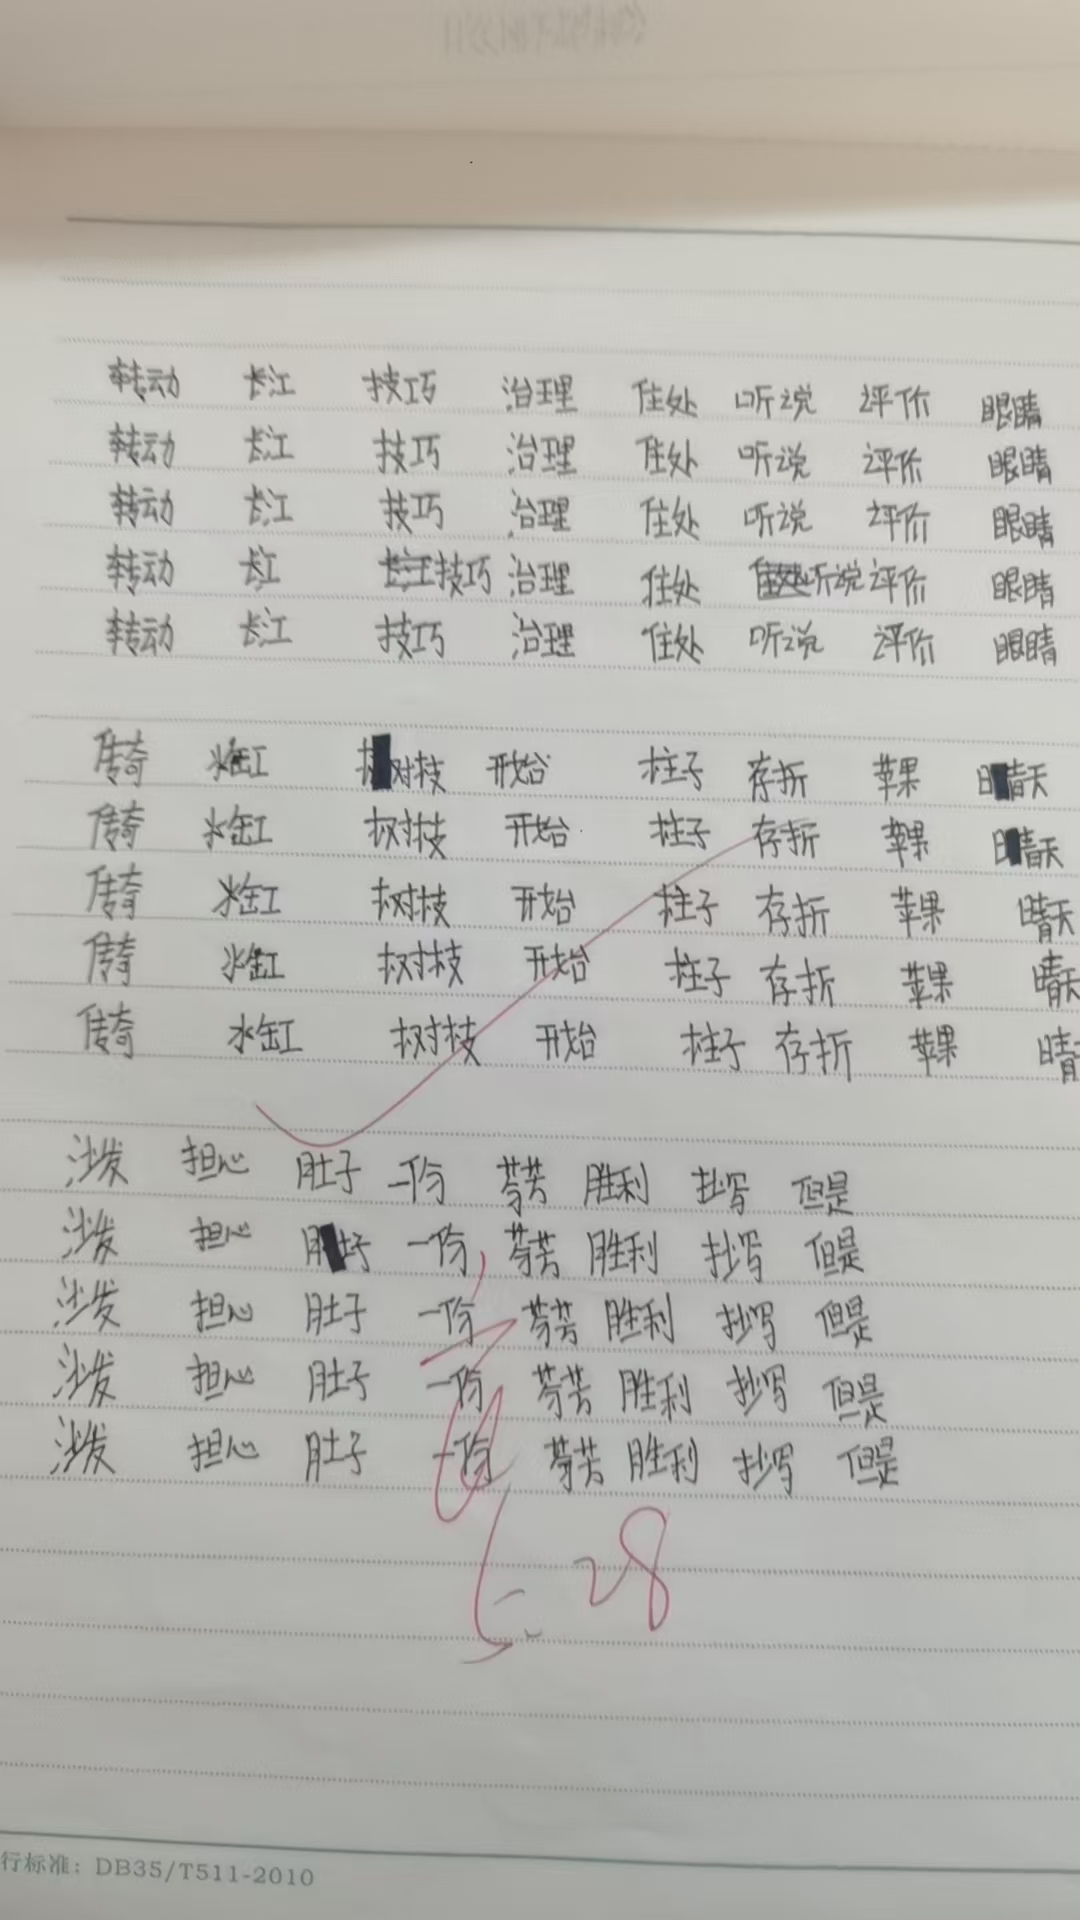 转动 长江 技巧 治理 住处 听说 评价 眼睛
转动 长江 技巧 治理 住处 听说 评价 眼睛
转动 长江 技巧 治理 住处 听说 评价 眼睛
转动 长江 技巧 治理 住处 听说 评价 眼睛
转动 长江 技巧 治理 住处 听说 评价 眼睛
传奇 水缸 树枝 开始 柱子 存折 苹果 晴天
传奇 水缸 树枝 开始 柱子 存折 苹果 晴天
传奇 水缸 树枝 开始 柱子 存折 苹果 晴天
传奇 水缸 树枝 开始 柱子 存折 苹果 晴天
传奇 水缸 树枝 开始 柱子 存折 苹果 晴
担心 肚子 一份 芬芳 胜利 抄写 但是
担心 肚子 一份 芬芳 胜利 抄写 但是
担心 肚子 一份 芬芳 胜利 抄写 但是
担心 肚子 一份 芬芳 胜利 抄写 但是
担心 肚子 一份 芬芳 胜利 抄写 但是
28
行标准：DB35/T511-2010